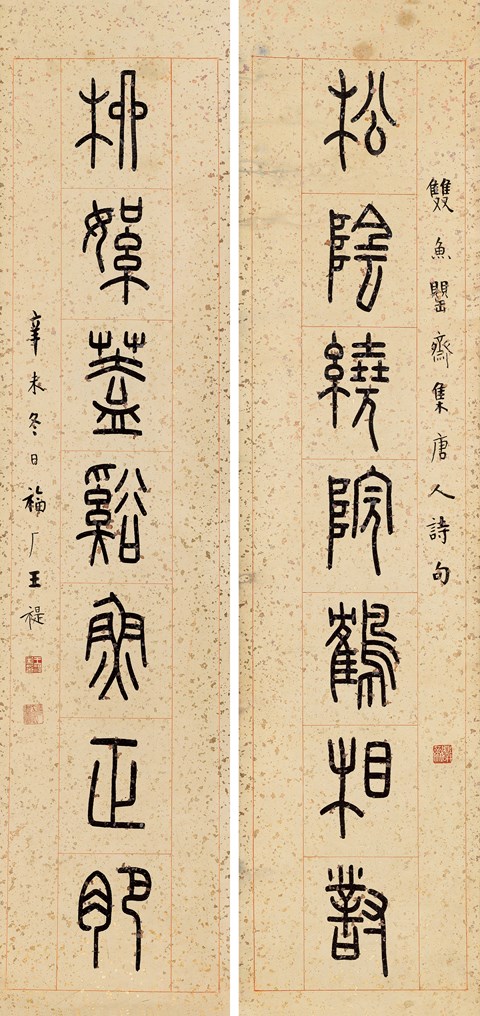 雙魚罌齋集唐人詩句
松陰繞院鶴相對
柳絮蓋谿魚正肥
辛未冬日福厂王禔